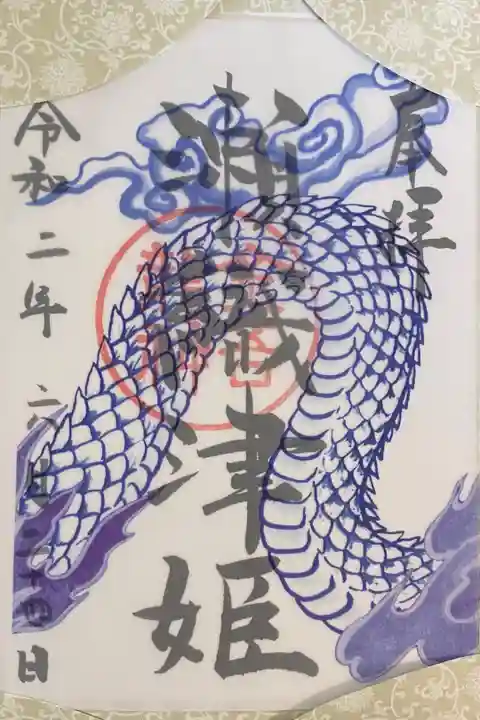 奉拝
瀬織津姫
令和二年六月二十四日